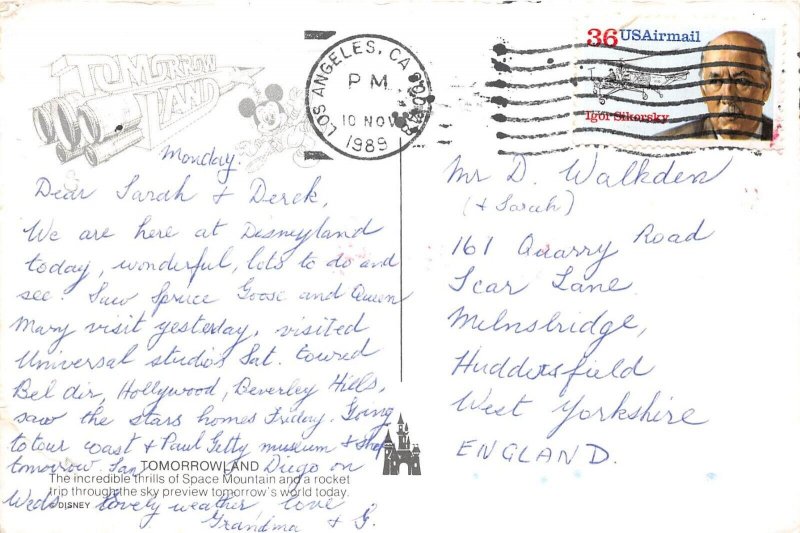 TOMORROW
LAND
LOS ANGELES, CA
PM
10 NOV
1989
36 USAirmail
Igor Sikorsky
Monday.
Dear Sarah & Derek,
We are here at Disneyland
today, wonderful, lots to do and
see. Saw Spruce Goose and Queen
Mary visit yesterday, visited
Universal studios Sat. toured
Bel Air, Hollywood, Beverley Hills,
saw the stars homes Friday. Going
to tour coast & Paul Getty museum & shop
tomorrow. San Diego on
Weds. Lovely weather, love
Grandma & G.
TOMORROWLAND
The incredible thrills of Space Mountain and a rocket
trip through the sky preview tomorrow's world today.
© DISNEY
Mr D. Walkden
(& Sarah)
161 Quarry Road
Scar Lane
Milnsbridge,
Huddersfield
West Yorkshire
ENGLAND.